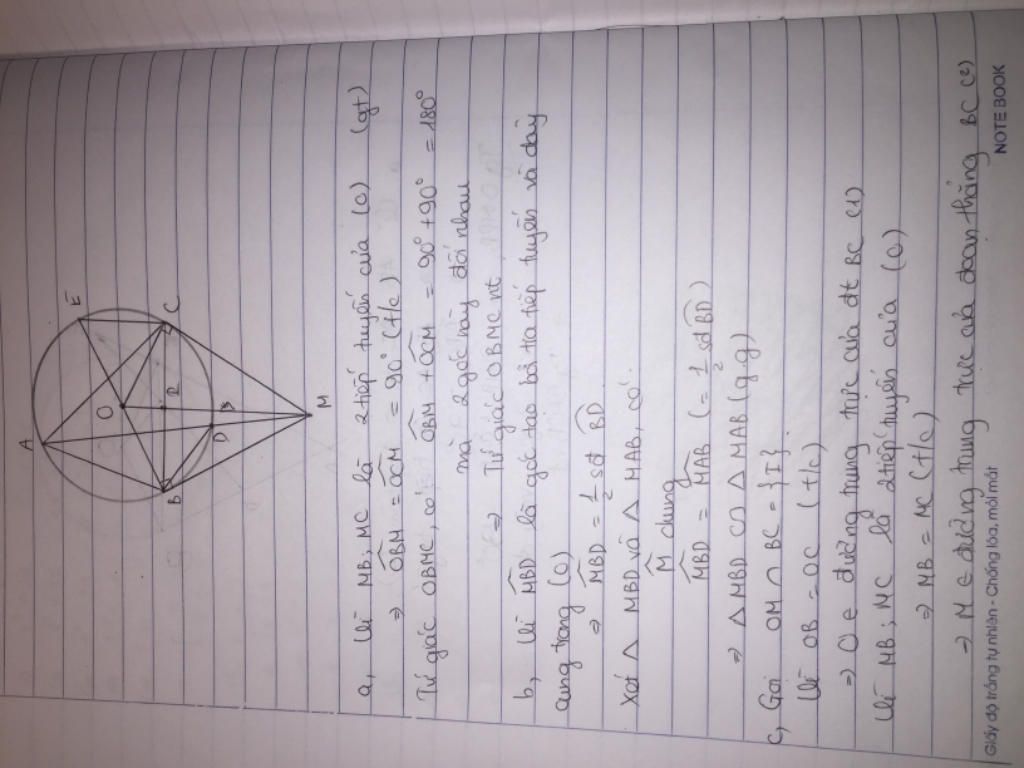 A
E
O
B
C
I
D
M
a, Vì MB; MC là 2 tiếp tuyến của (O) (gt)
⇒ \widehat{OBM} = \widehat{OCM} = 90° (t/c)
Tứ giác OBMC, có: \widehat{OBM} + \widehat{OCM} = 90° + 90° = 180°
mà 2 góc này đối nhau
⇒ Tứ giác OBMC nt
b, Vì \widehat{MBD} là góc tạo bởi tia tiếp tuyến và dây
cung trong (O)
⇒ \widehat{MBD} = \frac{1}{2} sđ \widehat{BD}
Xét △ MBD và △ MAB, có:
\widehat{M} chung
\widehat{MBD} = \widehat{MAB} (= \frac{1}{2} sđ \widehat{BD})
⇒ △ MBD ∽ △ MAB (g.g)
c, Gọi OM ∩ BC = {I}
Vì OB = OC (t/c)
⇒ O ∈ đường trung trực của đt BC (1)
Vì MB; MC là 2 tiếp tuyến của (O)
⇒ MB = MC (t/c)
⇒ M ∈ đường trung trực của đoạn thẳng BC (2)
Giấy độ trắng tự nhiên - Chống lóa, mỏi mắt
NOTEBOOK